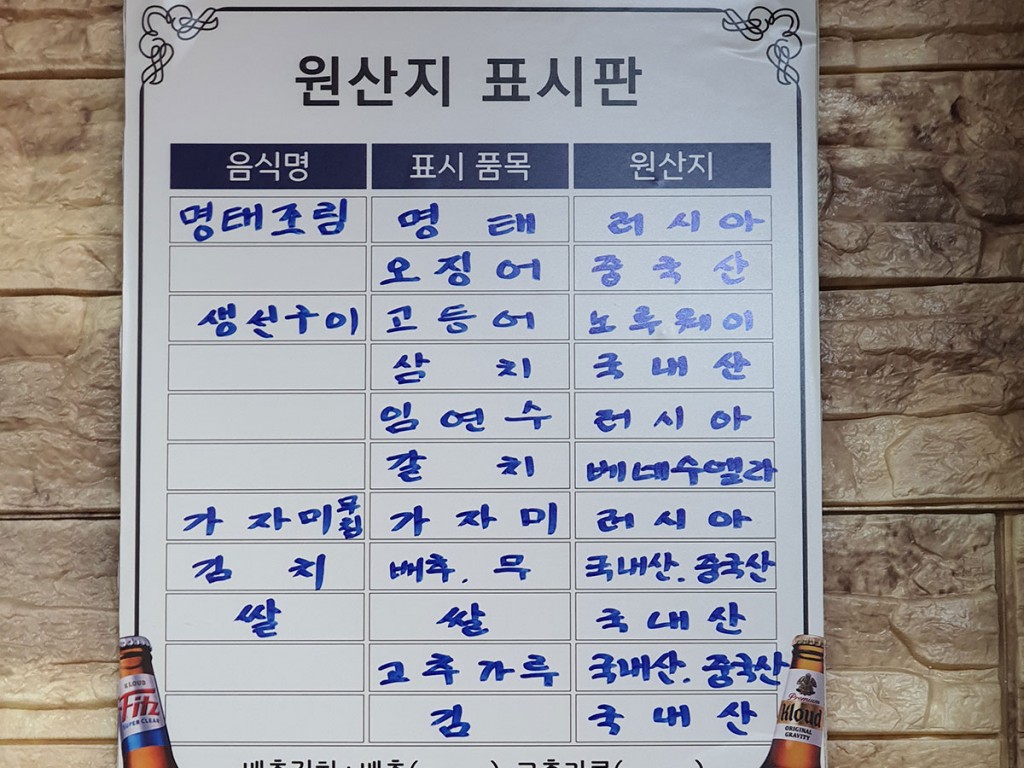 원산지 표시판
음식명 표시 품목 원산지
명태조림 명태 러시아
오징어 중국산
생선구이 고등어 노루웨이
삼치 국내산
임연수 러시아
갈치 베네수엘라
가자미무침 가자미 러시아
김치 배추, 무 국내산, 중국산
쌀 쌀 국내산
고추가루 국내산, 중국산
김 국내산
KLOUD
Fitz
SUPER CLEAR
Premium
Kloud
ORIGINAL
GRAVITY
배추김치 : 배추( ) 고춧가루( )